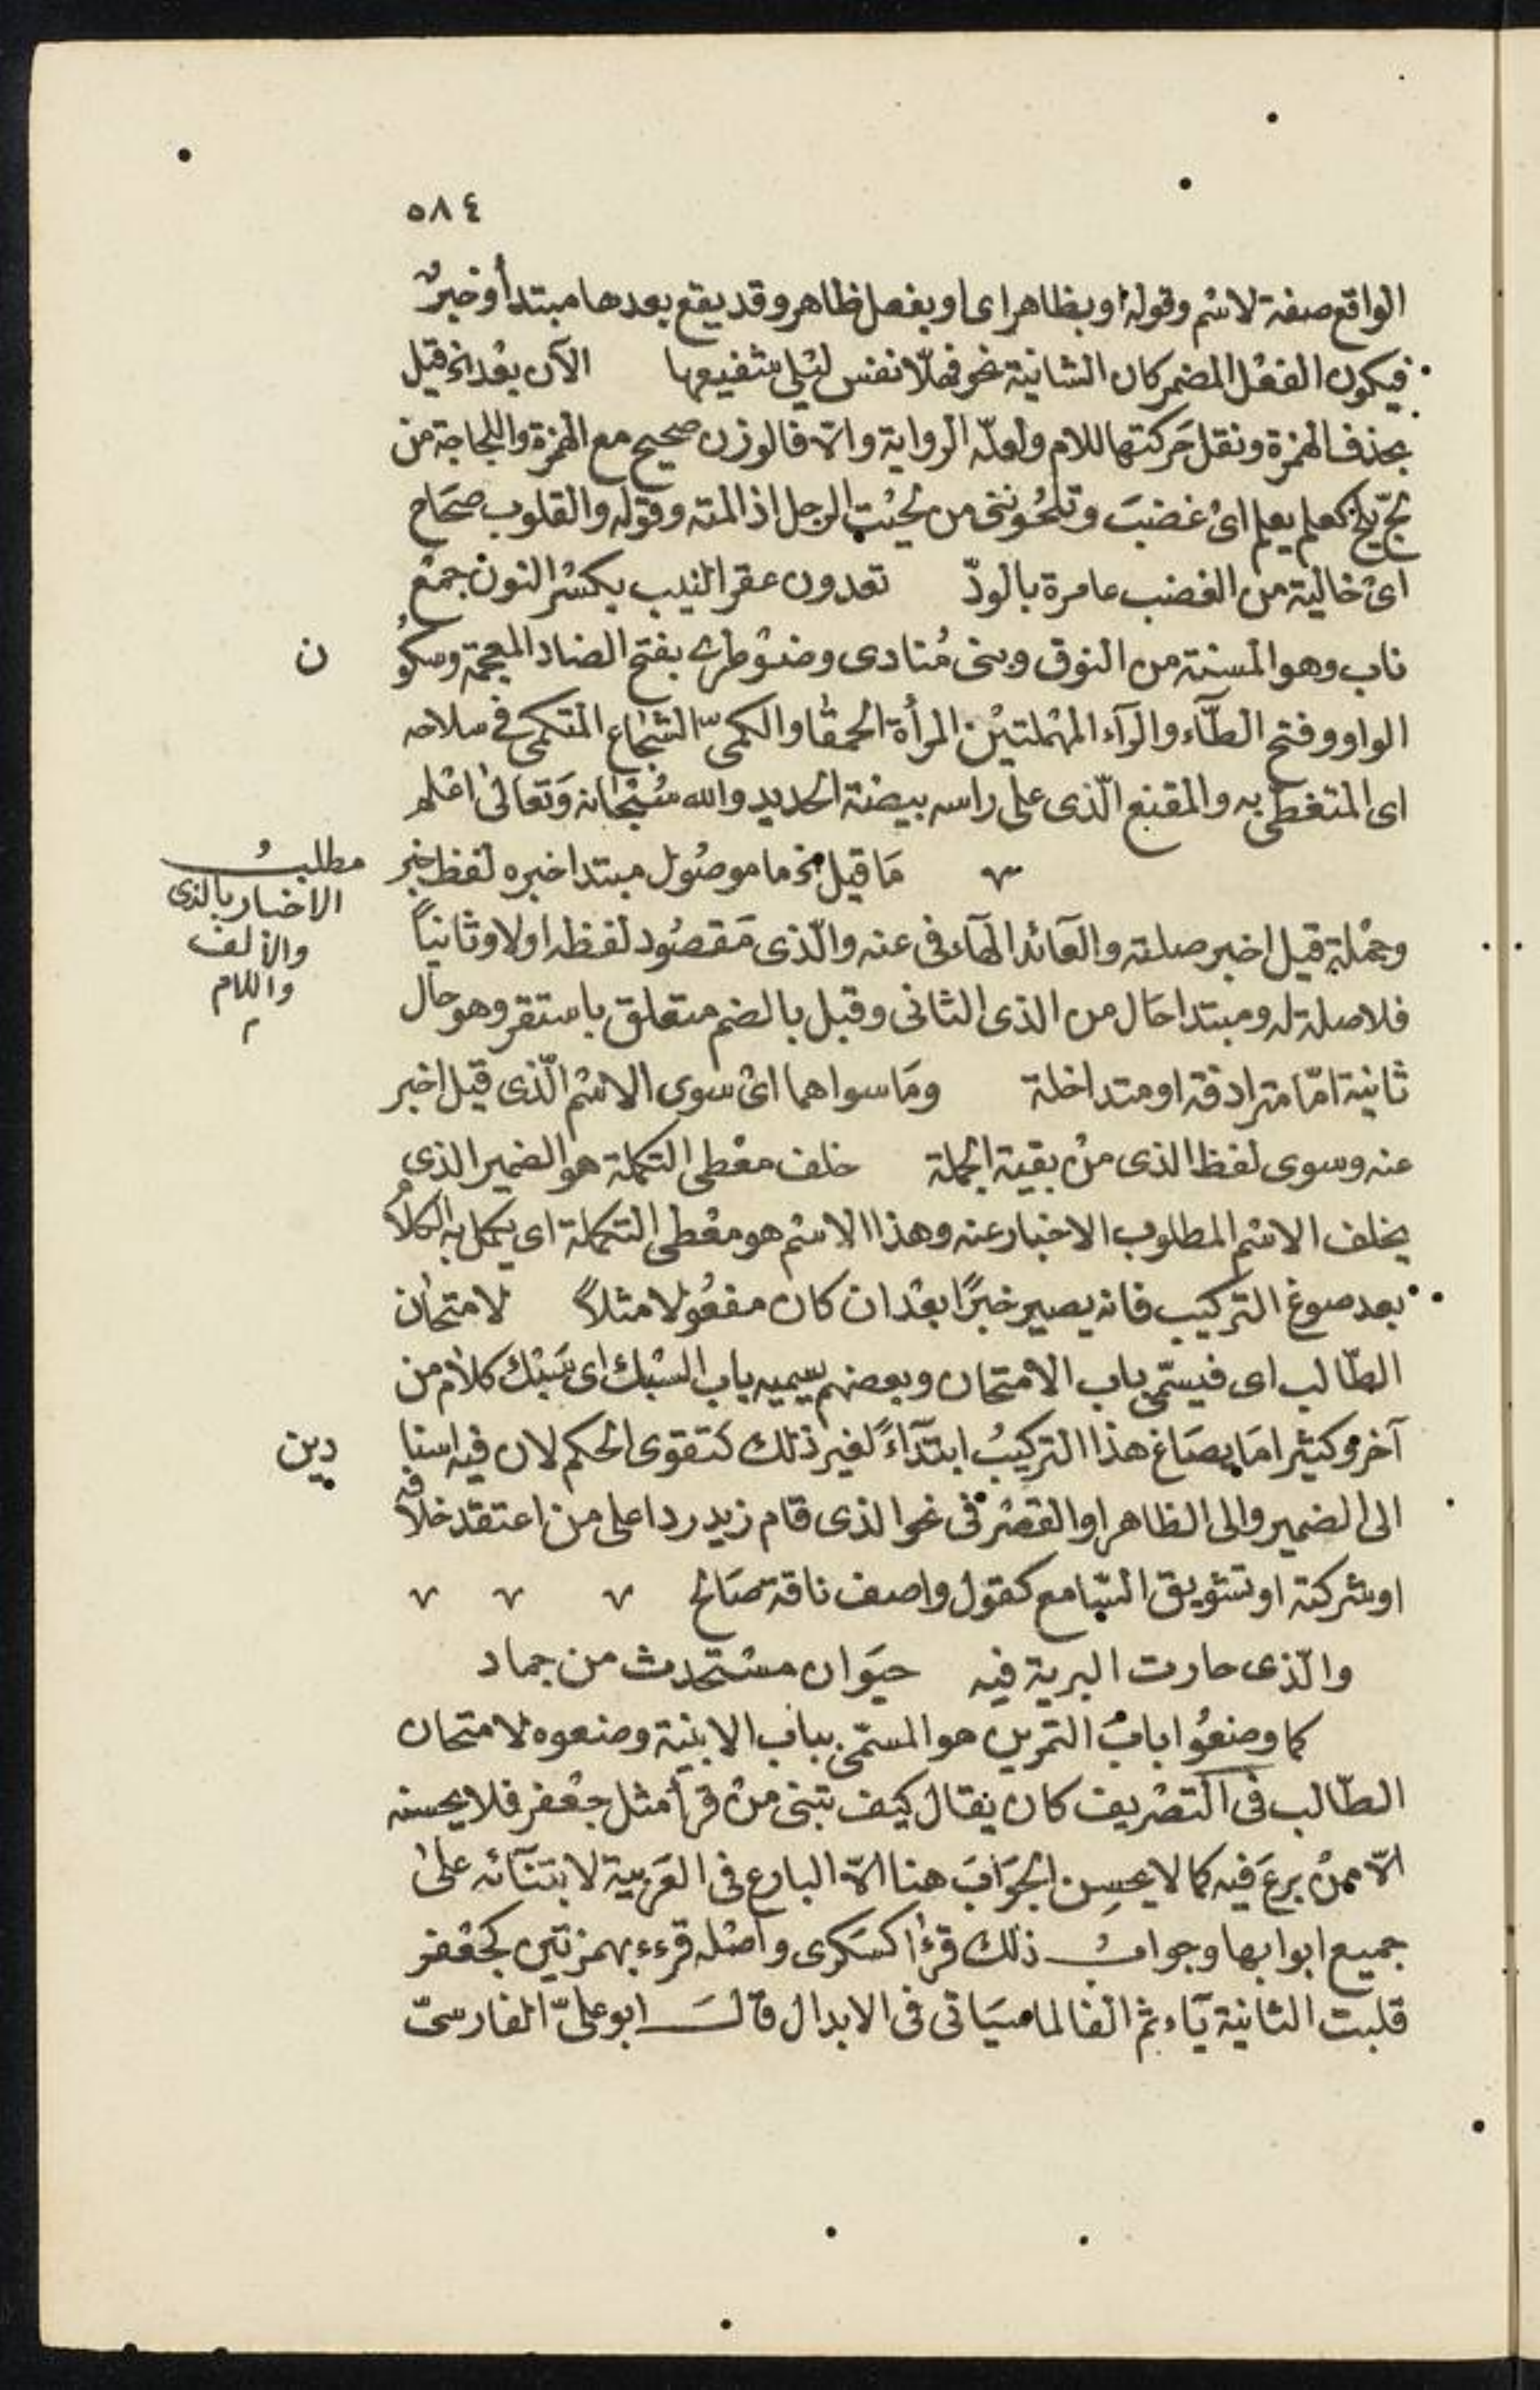 ٥٨٤
الواقع صفة لاسم وقوله او بظاهر اى او بفعل ظاهر وقد يقع بعدها مبتدأ وخبر
فيكون الفعل المضمر كان الشانية نحو فهلّا نفس ليلى شفيعها الآن بعد الخ قيل
بحذف الهمزة ونقل حَركتها للام ولعلّه الرواية والّا فالوزن صحيح مع الهمزة واللجاجة من
لجّ يلج كعلم يعلم اى غضبَ وتلحُونني من لحيْت الرجل اذا لمته وقوله والقلوب صحَاح
اىْ خالية من الغضب عامرة بالودّ تعدون عقر النيب بكسْر النون جمْع
ناب وهو المسنة من النوق وبنى مُنادى وضوْطرى بفتح الضاد المعجمة وسكُو ن
الواو وفتح الطّآء والرآء المهْملتيْن المرأة الحمقَا والكمىّ الشجَاع المتكمى فى سلاحه
اى المتغطّى به والمقنع الّذى على راسه بيضة الحديد والله سُبْحانه وَتعالىٰ اعْلم
مَا قيل الخ ما موصُول مبتدا خبره لفظ خبر
مطلبُ
الاخبار بالذى
والالف
واللام
وجمْلة قيل اخبر صلته والعَائد الهَاء فى عنه والّذى مَقصُود لفظه اولا وثانياً
فلا صلة له ومبتدا حَال من الذى الثانى وقبل بالضم متعلق باستقر وهو حال
ثانية امّا مترادفة او متداخلة ومَا سواهما اىْ سوى الاسْم الّذى قيل اخبر
عنه وسوى لفظ الذى منْ بقية الجملة خلف معْطى التكملة هو الضمير الذى
يخلف الاسْم المطلوب الاخبار عنه وهذا الاسْم هو معْطى التكملة اى يكمل به الكلاُم
بعد صوغ التركيب فانه يصير خبرًا بعْد ان كان مفعُولا مثلاً لامتحان
الطّالب اى فيسمّى باب الامتحان وبعضهم يسميه باب السْبك اى سَبْك كلام من
آخر وكثيرا مَا يصَاغ هذا التركيبُ ابتدآءً لغير ذلك كتقوى الحكم لان فيه اسنا دين
الى الضمير والى الظاهر او القصْر فى نحو الذى قام زيد ردا على من اعتقد خلافه
او شركته او تشويق السّامع كقول واصف ناقة صَالح
والّذى حارت البرية فيه حيَوان مستحدث من جماد
كما وضعُوا بابُ التمرين هو المسمّى بباب الابنية وضعوه لامتحان
الطّالب فى التصْريف كان يقال كيف تبنى منْ قرأ مثل جعْفر فلا يحسنه
الّا منْ برعَ فيه كما لا يحسِن الجوَابَ هنا الّا البارع فى العَربية لابتنآئه علىٰ
جميع ابوابها وجوابُ ذلك قرْأا كسَكرى وأصْله قرءء بهمزتين كجعْفر
قلبت الثانية يَاء ثم الفا لما سيَاتى فى الابدال قالَ ابو علىّ الفارسىّ